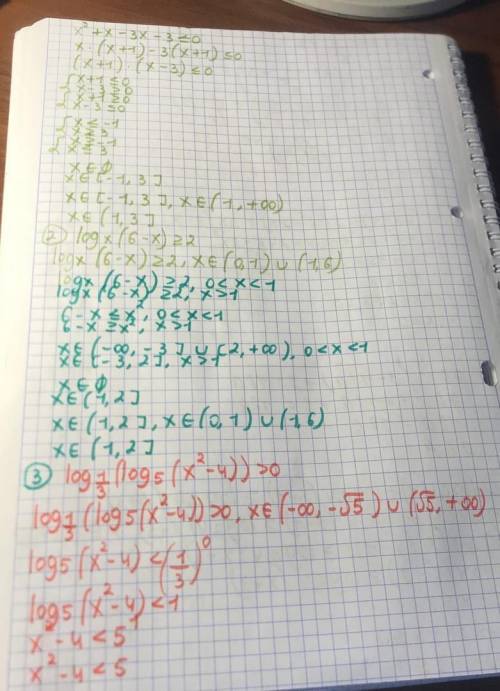 x² + x - 3x - 3 ≤ 0
x · (x+1) - 3(x+1) ≤ 0
(x+1) · (x-3) ≤ 0
x+1 ≤ 0
x-3 ≥ 0
x+1 ≥ 0
x-3 ≤ 0
x ≤ -1
x ≥ 3
x ≥ -1
x ≤ 3
x ∈ ∅
x ∈ [-1, 3]
x ∈ [-1, 3], x ∈ (1, +∞)
x ∈ (1, 3]
② logx (6-x) ≥ 2
logx (6-x) ≥ 2, x ∈ (0,1) ∪ (1,6)
logx (6-x) ≥ 2, 0 < x < 1
logx (6-x) ≥ 2, x > 1
6-x ≤ x², 0 < x < 1
6-x ≥ x², x > 1
x ∈ (-∞, -3] ∪ [2, +∞), 0 < x < 1
x ∈ [-3, 2], x > 1
x ∈ ∅
x ∈ (1, 2]
x ∈ (1, 2], x ∈ (0, 1) ∪ (1, 6)
x ∈ (1, 2]
③ log 1/3 (log5 (x²-4)) > 0
log 1/3 (log5 (x²-4)) > 0, x ∈ (-∞, -√5) ∪ (√5, +∞)
log5 (x²-4) < (1/3)⁰
log5 (x²-4) < 1
x² - 4 < 5¹
x² - 4 < 5